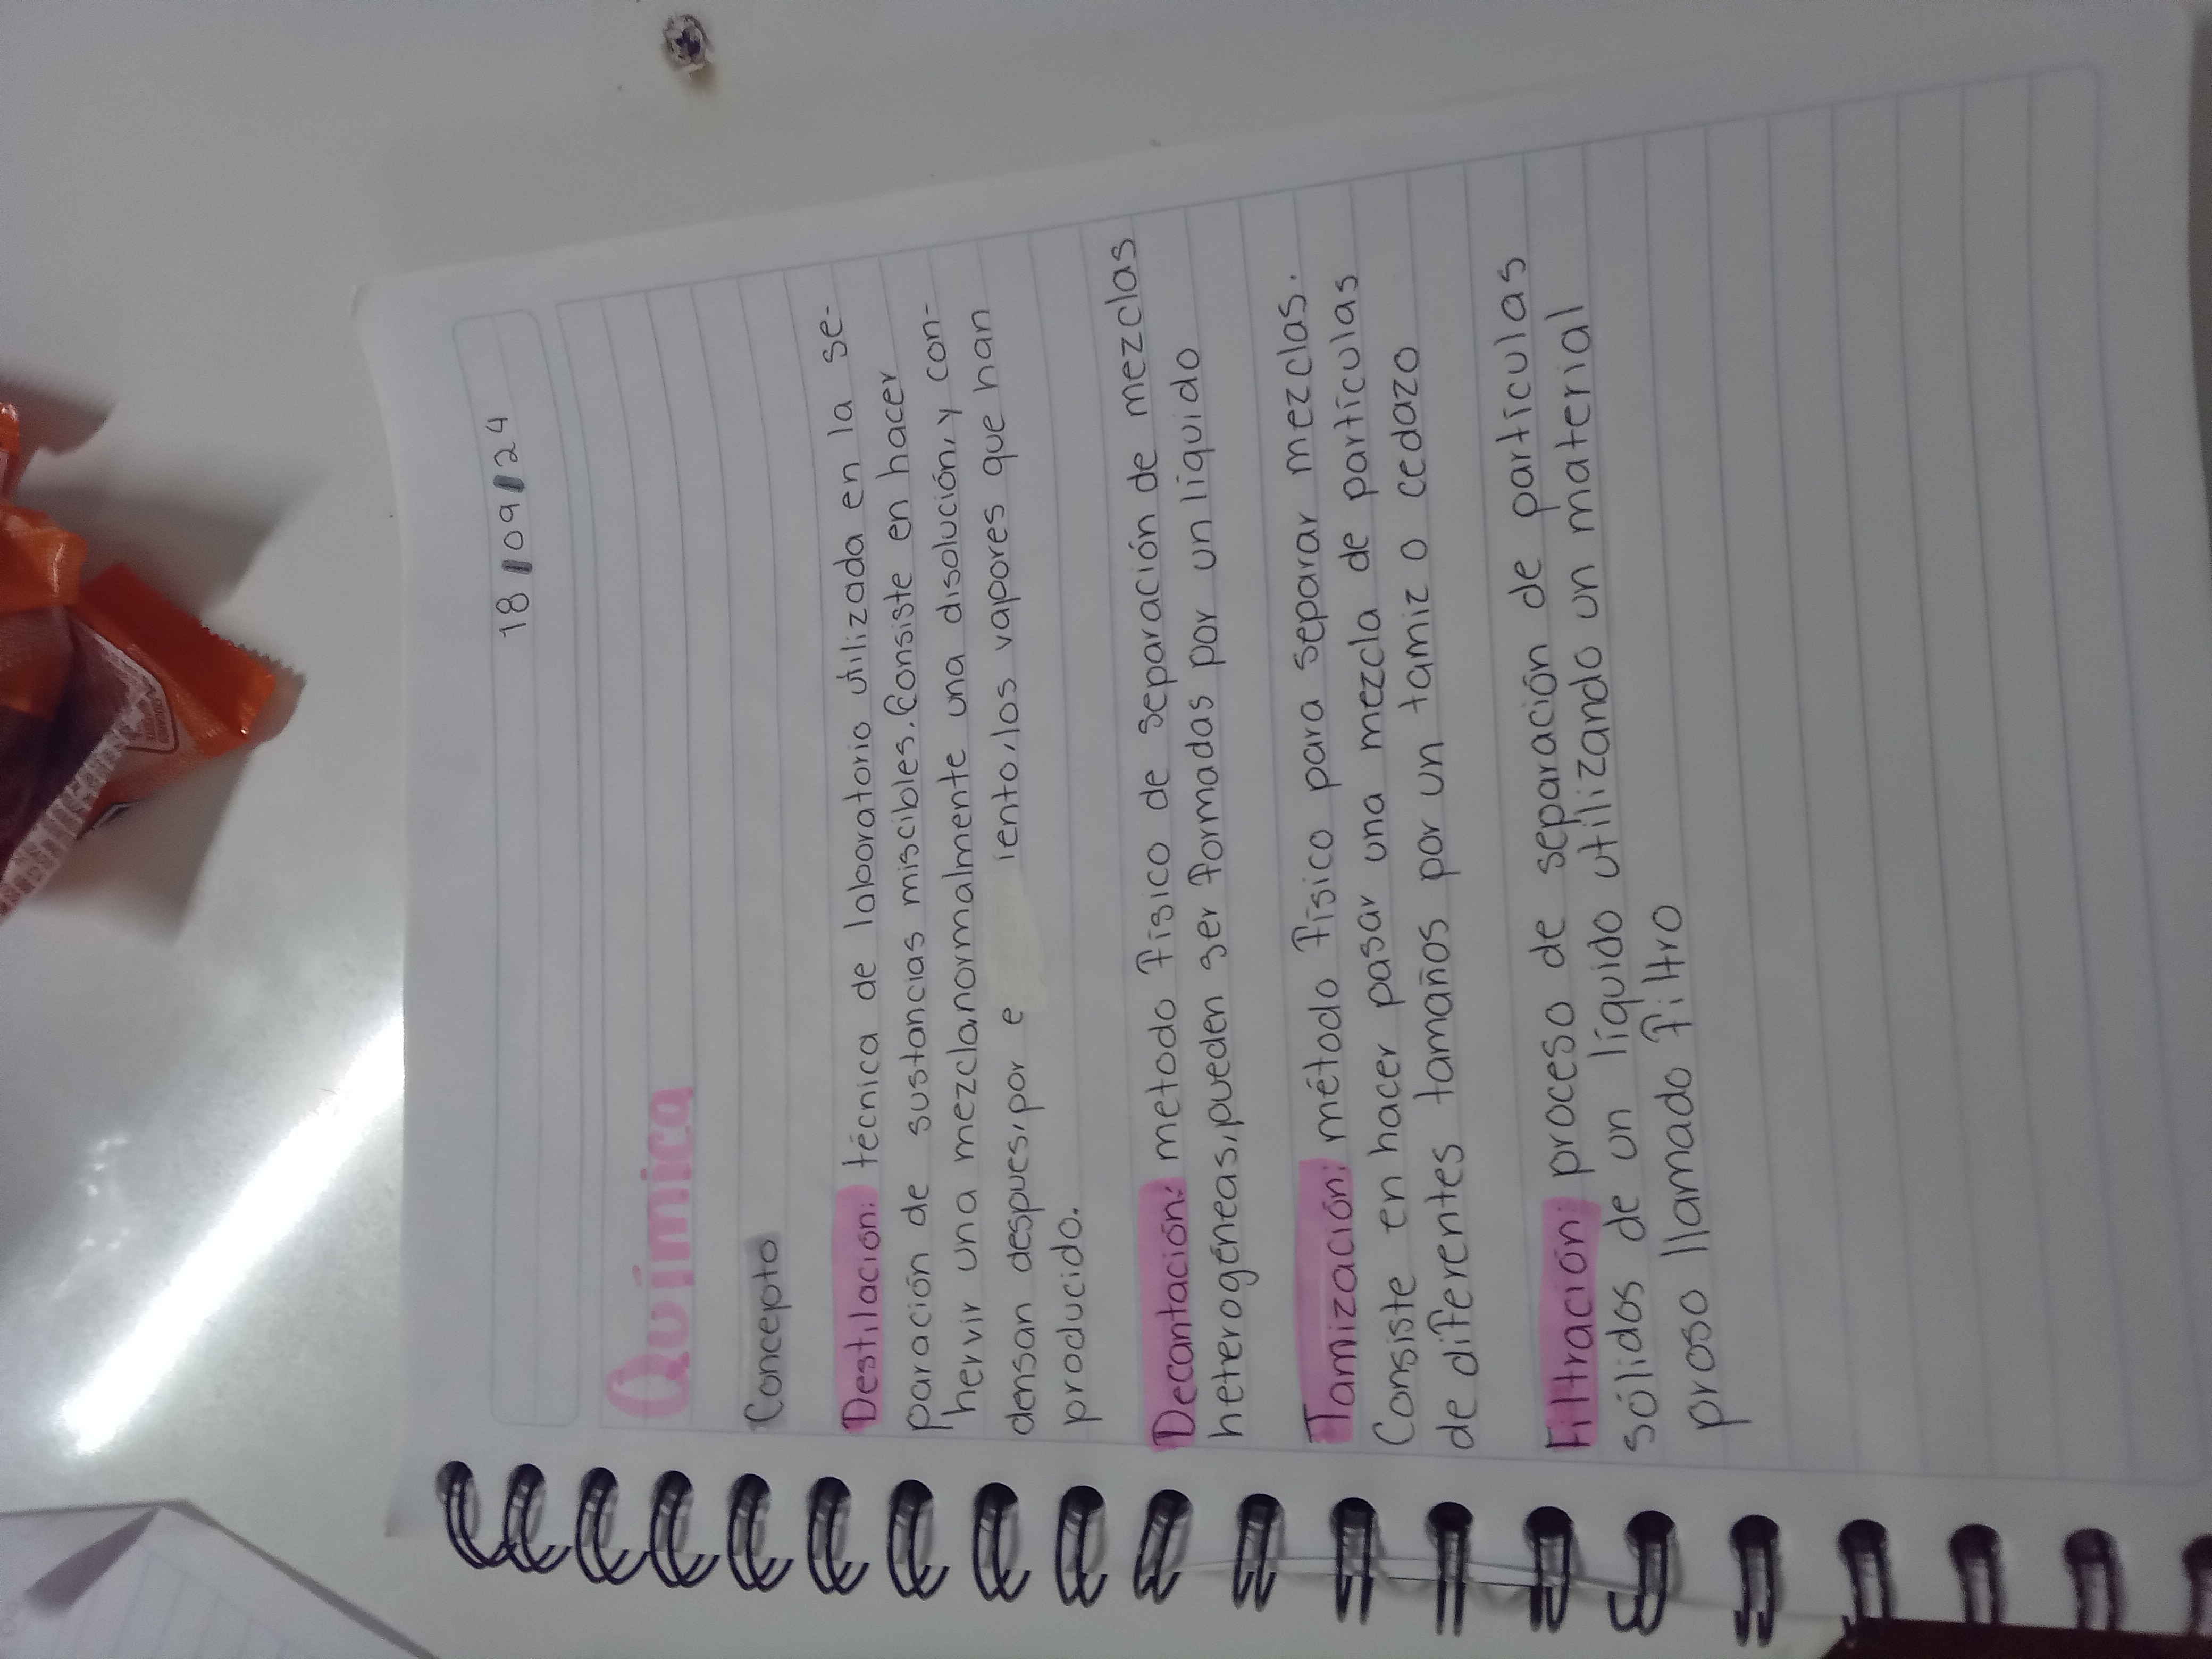 18/09/24
Química
Concepto
Destilación: técnica de laboratorio utilizada en la se-
paración de sustancias miscibles. Consiste en hacer
hervir una mezcla, normalmente una disolución, y con-
densan despues, por e iento, los vapores que han
producido.
Decantación: metodo físico de separación de mezclas
heterogéneas, pueden ser formadas por un líquido
Tamización: método físico para separar mezclas.
Consiste en hacer pasar una mezcla de partículas
de diferentes tamaños por un tamiz o cedazo
Filtración: proceso de separación de partículas
sólidos de un líquido utilizando un material
proso llamado filtro